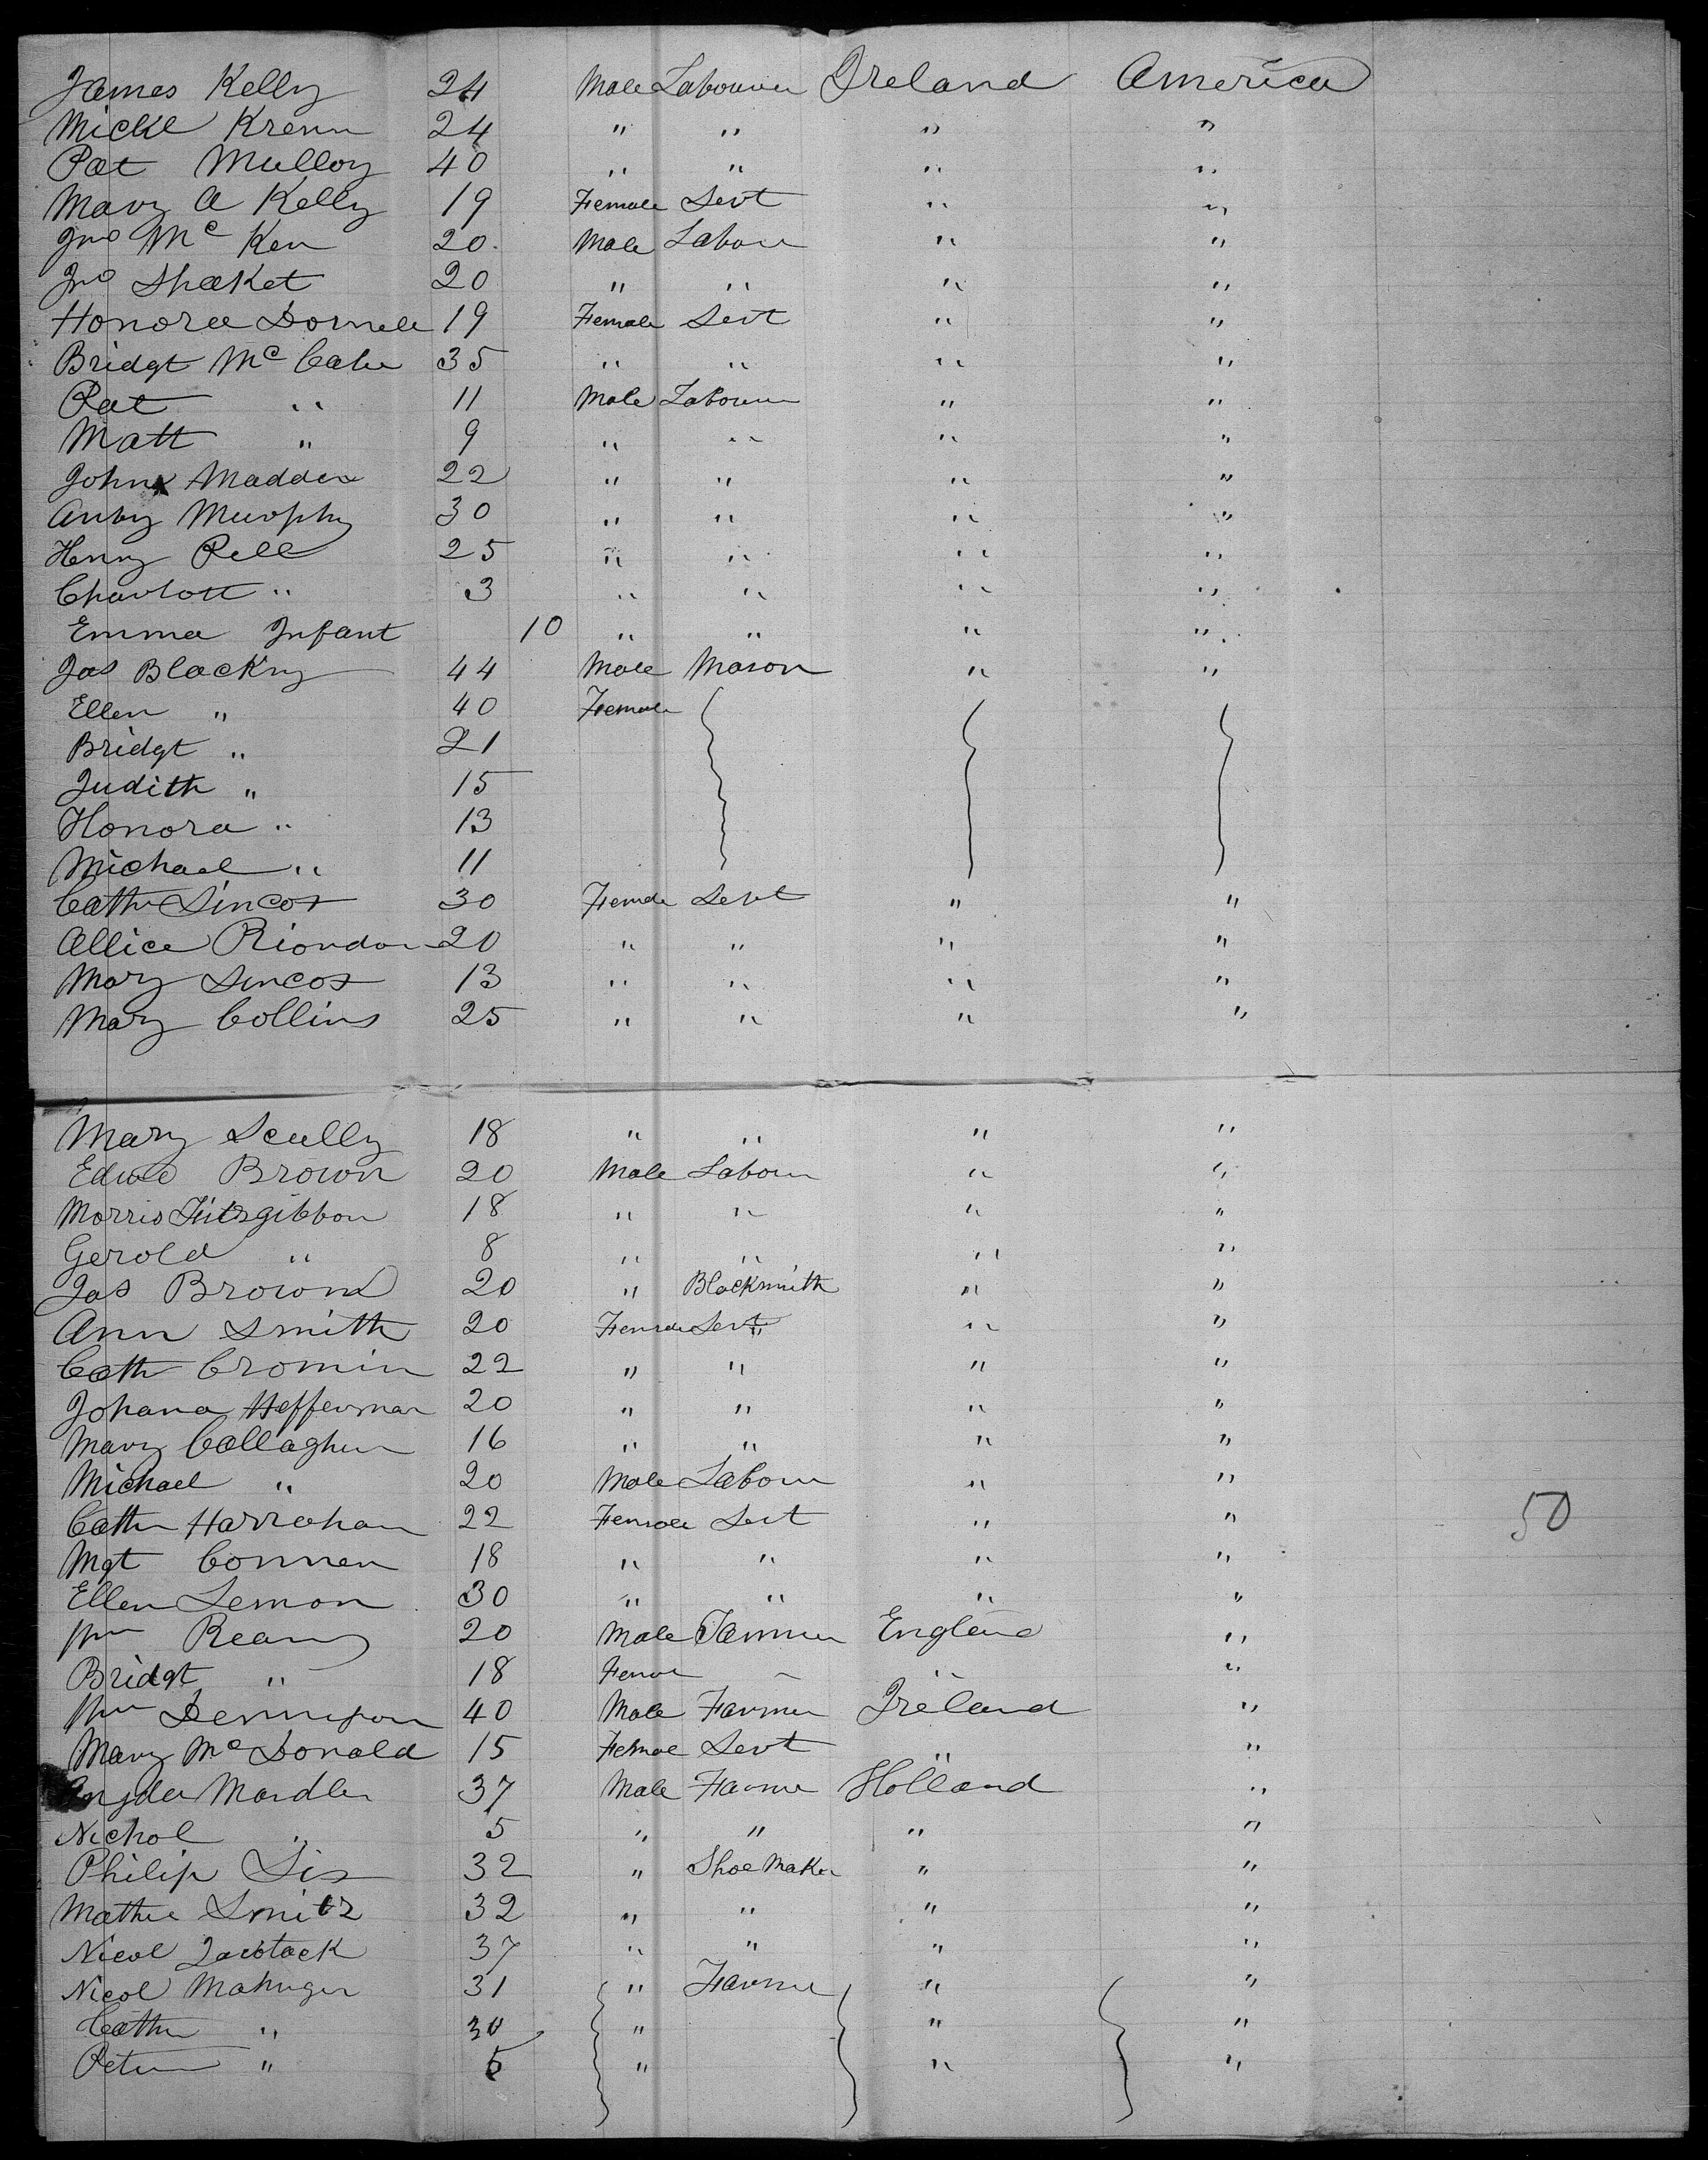 James Kelly 24 Male Labourer Ireland America
Mickl Krenn 24 " " " "
Pat Mulloy 40 " " " "
Mary A Kelly 19 Female Servt " "
Jno Mc Ken 20 Male Labour " "
Jno Shaket 20 " " " "
Honora Dornell 19 Female Servt " "
Bridgt Mc Cabe 35 " " " "
Pat " 11 Male Labourer " "
Matt " 9 " " " "
John Madden 22 " " " "
Anty Murphy 30 " " " "
Henry Pell 25 " " " "
Charlott " 3 " " " "
Emma Infant 10 " " " "
Jas Blackny 44 Male Mason " "
Ellen " 40 Female
Bridgt " 21
Judith " 15
Honora " 13
Michael " 11
Cath Sincox 30 Female Servt " "
Allice Riordon 20 " " " "
Mary Sincox 13 " " " "
Mary Collins 25 " " " "
Mary Scully 18 " " " "
Edwd Brown 20 Male Labour " "
Morris Fitzgibbon 18 " " " "
Gerold " 8 " " " "
Jas Brown 20 " Blacksmith " "
Ann Smith 20 Female Servt " "
Cath Cromin 22 " " " "
Johana Heffernan 20 " " " "
Mary Callaghan 16 " " " "
Michael " 20 Male Labour " "
Cath Harrahan 22 Female Servt " "
Mgt Connen 18 " " " "
Ellen Lemon 30 " " " "
Wm Reany 20 Male England "
Bridgt " 18 Female " "
Wm Dennison 40 Male Farmer Ireland "
Mary Mc Donald 15 Female Servt " "
Mardler 37 Male Farmer Holland "
Nichol " 5 " " " "
Philip Sis 32 " Shoe Maker " "
Mathe Smitz 32 " " " "
Nicol 37 " " " "
Nicol Mahnger 31 " Farmer " "
Cath " 30 " " "
Peter " 5 " " "
50